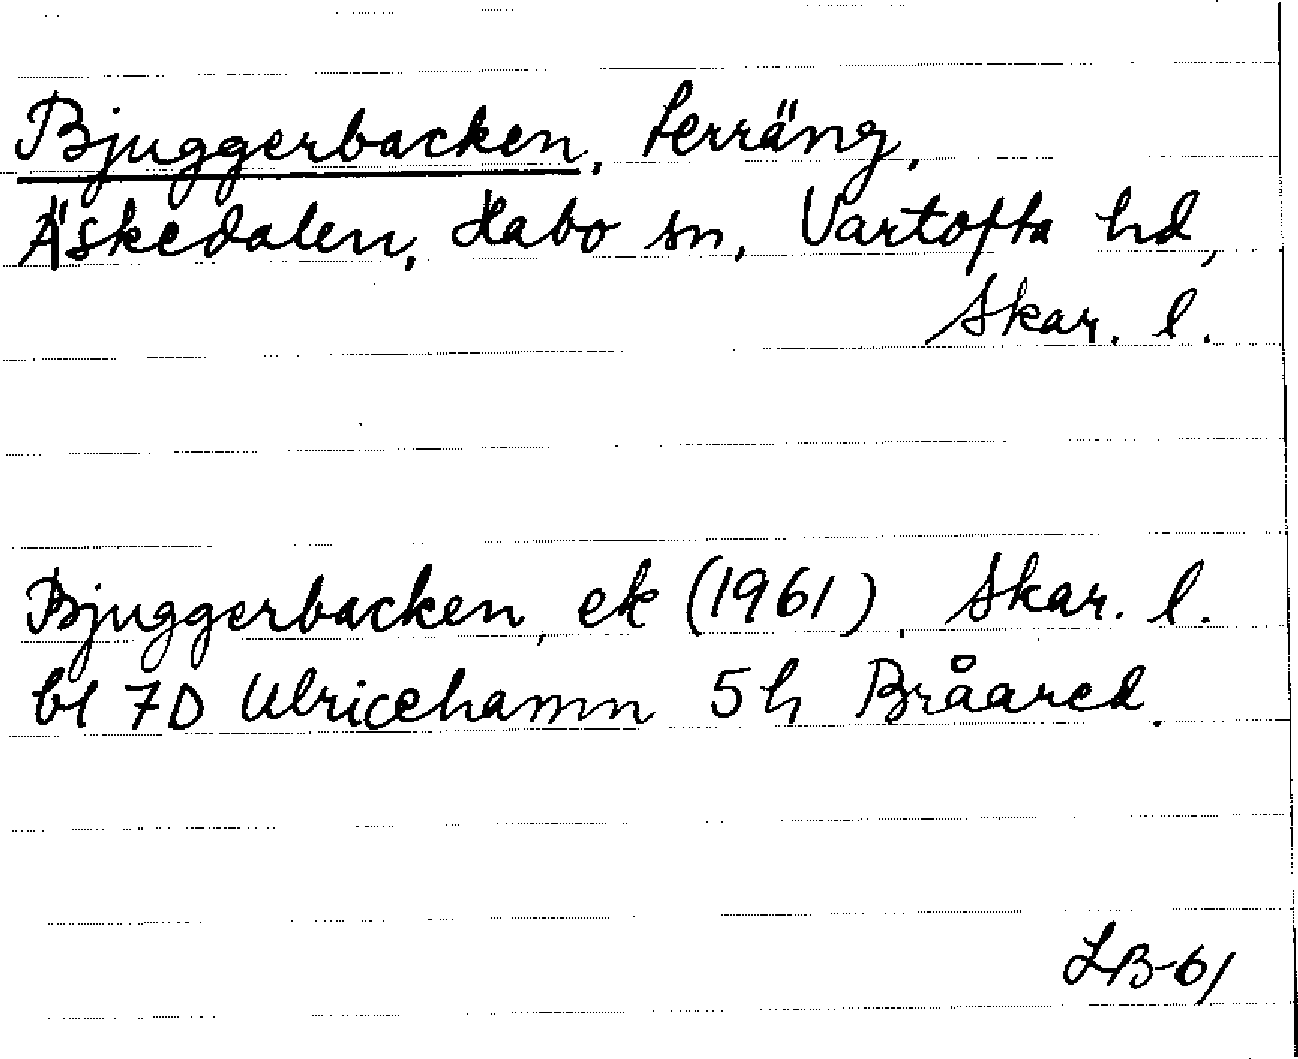 Bjuggerbacken, terräng,
Äskedalen, Habo sn, Vartofta hd,
Skar. l.
Bjuggerbacken, ek (1961), Skar. l.
bl 7D Ulricehamn 5h Bråared.
LB-61